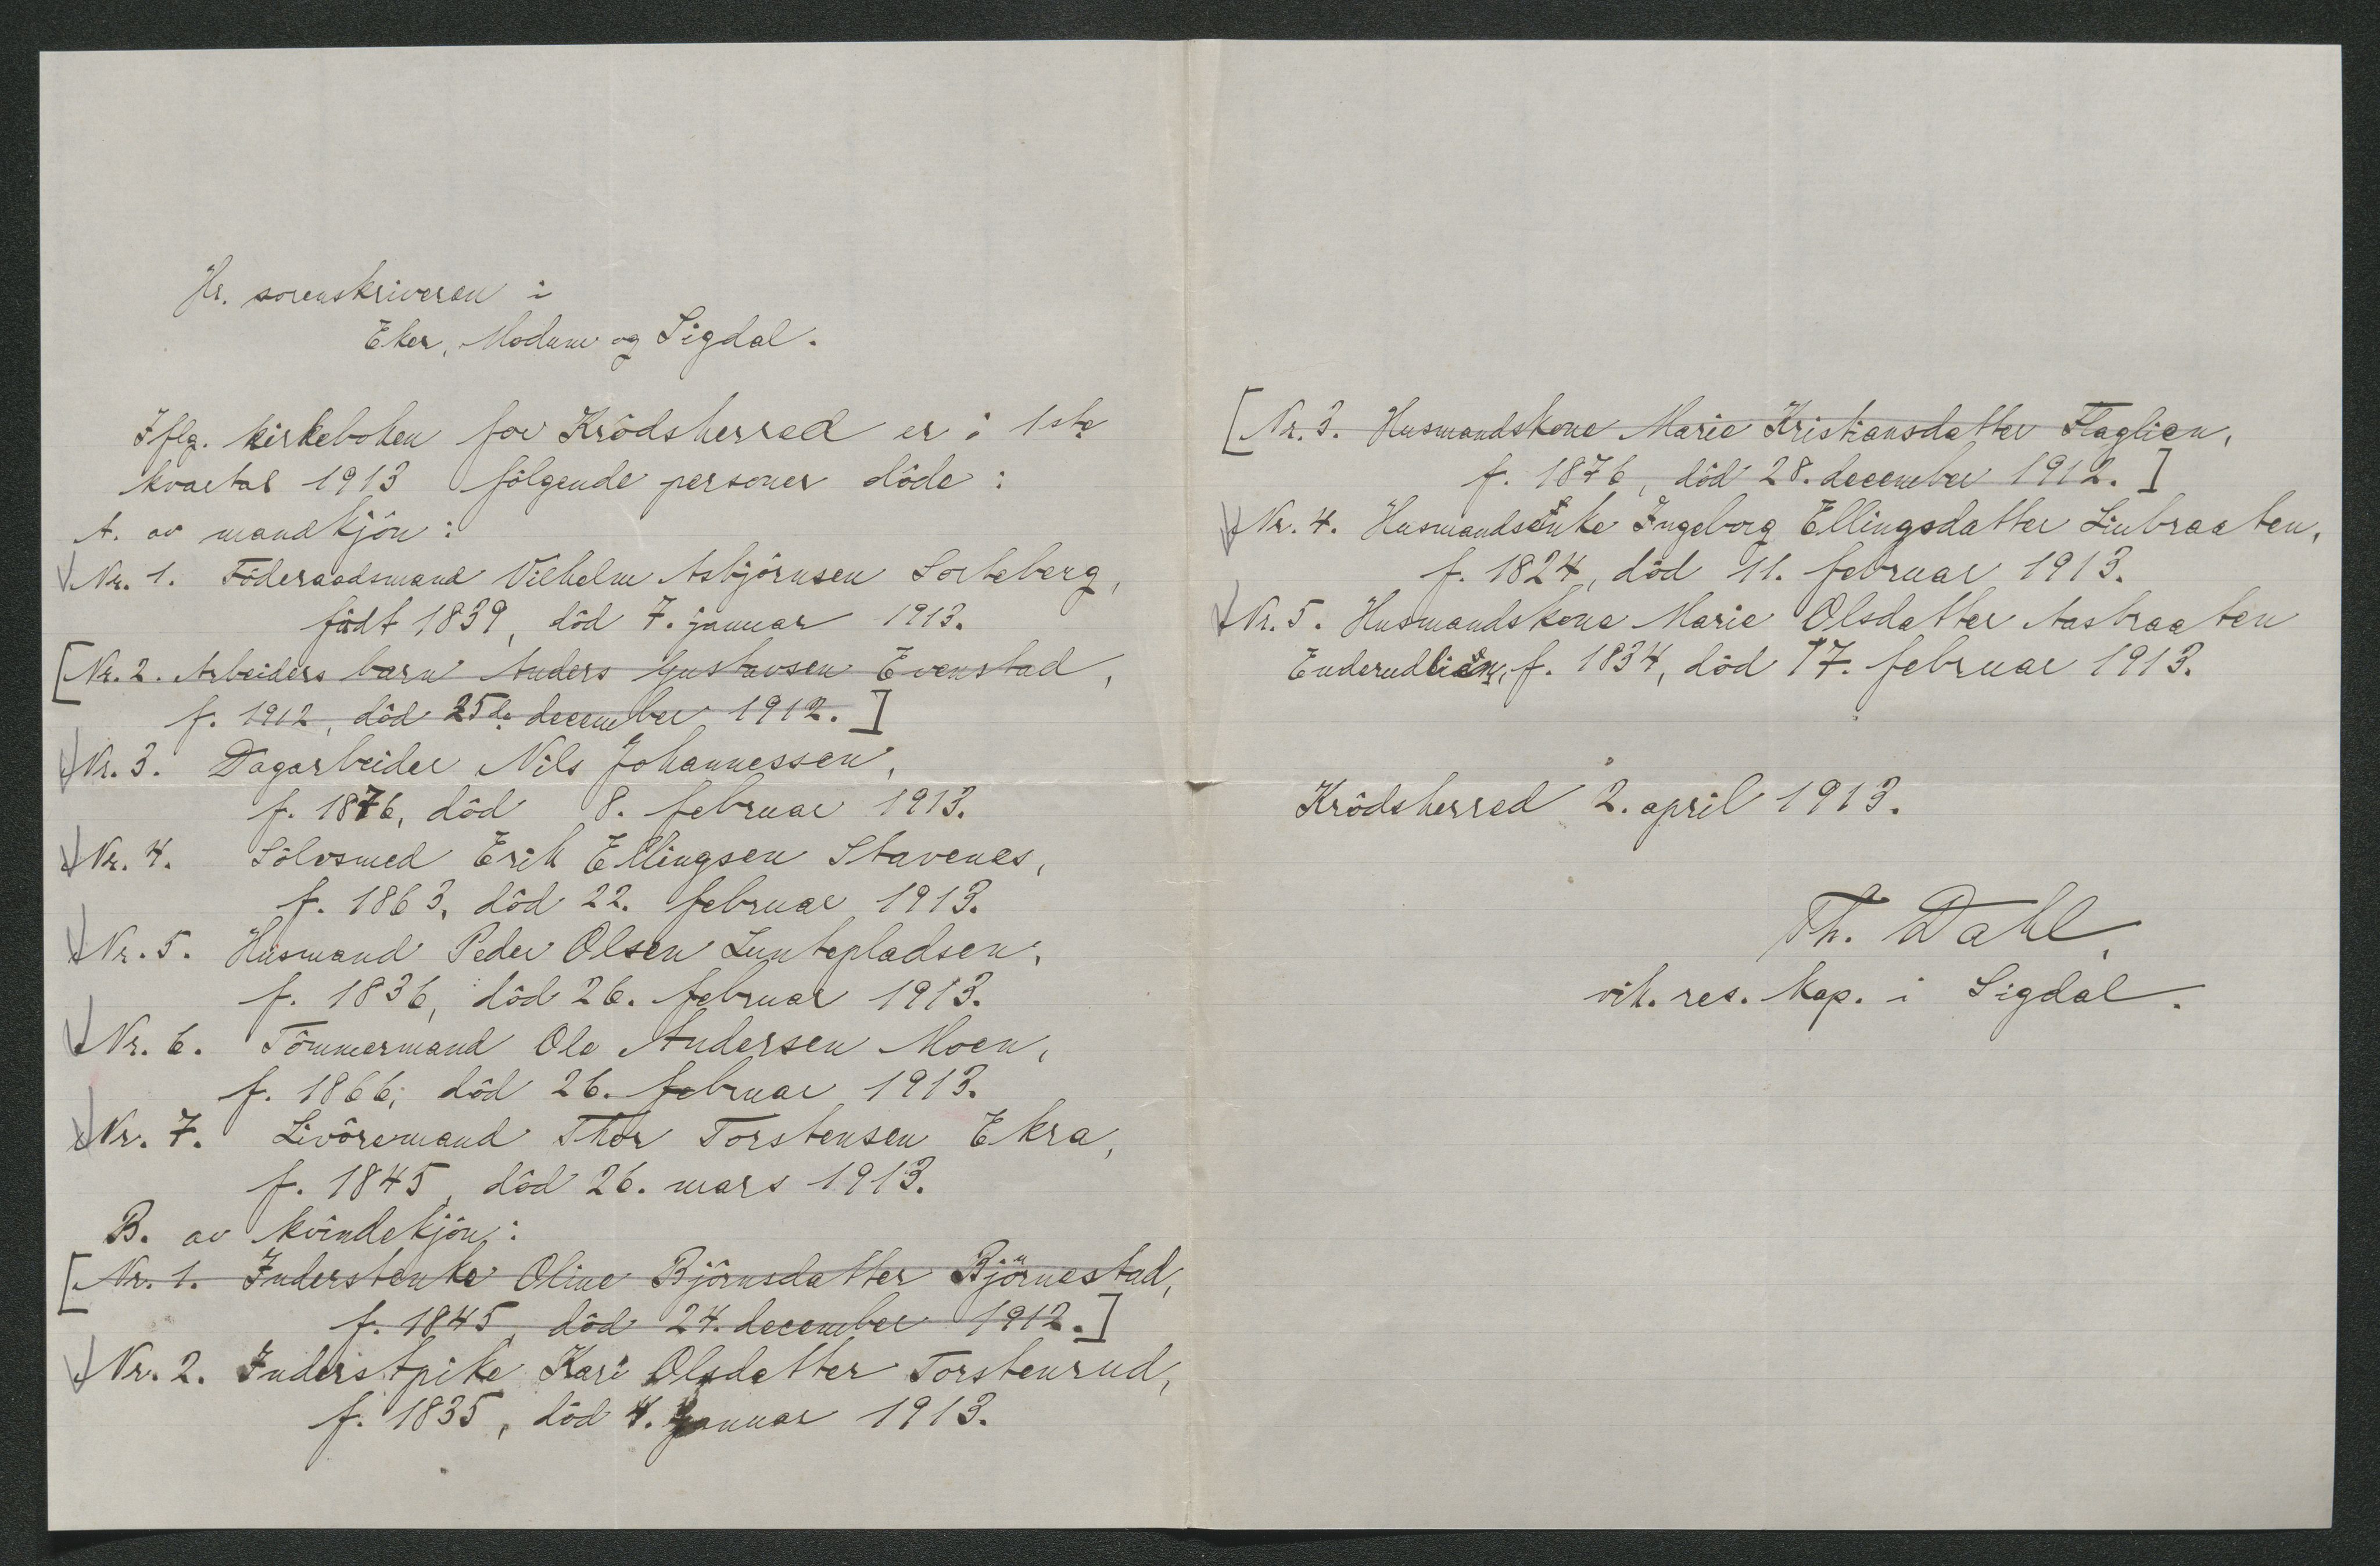 Hr. sorenskriveren i
Eker, Modum og Sigdal.
Iflg. kirkeboken for Krödsherred er i 1ste
kvartal 1913 følgende personer döde:
A. av mandkjön:
Nr. 1. Föderaadsmand Vilhelm Asbjörnsen Sorteberg,
födt 1839, död 7. januar 1913.
[Nr. 2. Arbeiders barn Anders Gustavsen Evenstad,
f. 1912, död 25de december 1912.]
Nr. 3. Dagarbeider Nils Johannessen,
f. 1876, död 8. februar 1913.
Nr. 4. Sölvsmed Erik Ellingsen Stavenes,
f. 1863, död 22. februar 1913.
Nr. 5. Husmand Peder Olsen Luntepladsen,
f. 1836, död 26. februar 1913.
Nr. 6. Tömmermand Ole Andersen Moen,
f. 1866, död 26. februar 1913.
Nr. 7. Livöremand Thor Torstensen Ekra,
f. 1845, död 26. mars 1913.
B. av kvindekjön:
[Nr. 1. Inderstenke Oline Björnsdatter Björnestad,
f. 1845, död 24. december 1912.]
Nr. 2. Inderstpike Kari Olsdatter Torstenrud,
f. 1835, död 4. januar 1913.
[Nr. 3. Husmandskone Marie Kristiansdatter Flaglien,
f. 1876, död 28. december 1912.]
Nr. 4. Husmandsenke Ingeborg Ellingsdatter Linbraaten,
f. 1824, död 11. februar 1913.
Nr. 5. Husmandskone Marie Olsdatter Aasbraaten
Enderudlien, f. 1834, död 17. februar 1913.
Krödsherred 2. april 1913.
Th. Dahl,
vik. res. kap. i Sigdal.